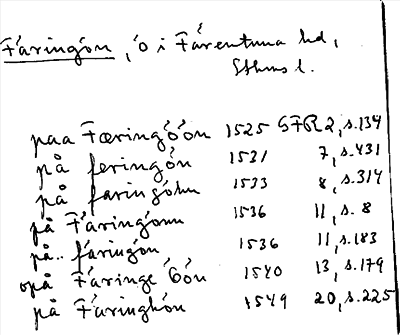 Färingön, ö i Färentuna hd,
Sthms l.
paa Færingöön 1525 GFR 2, s.134
på feringön 1531 7, s.431
på faringöhn 1533 8, s.314
på Färingönn 1536 11, s. 8
på.. färingön 1536 11, s.183
opå Färinge Öön 1540 13, s.179
på Färinghön 1549 20, s.225